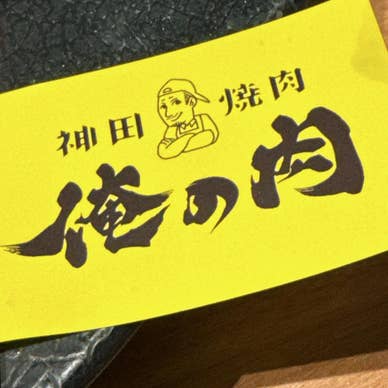 神田 焼肉
俺の肉